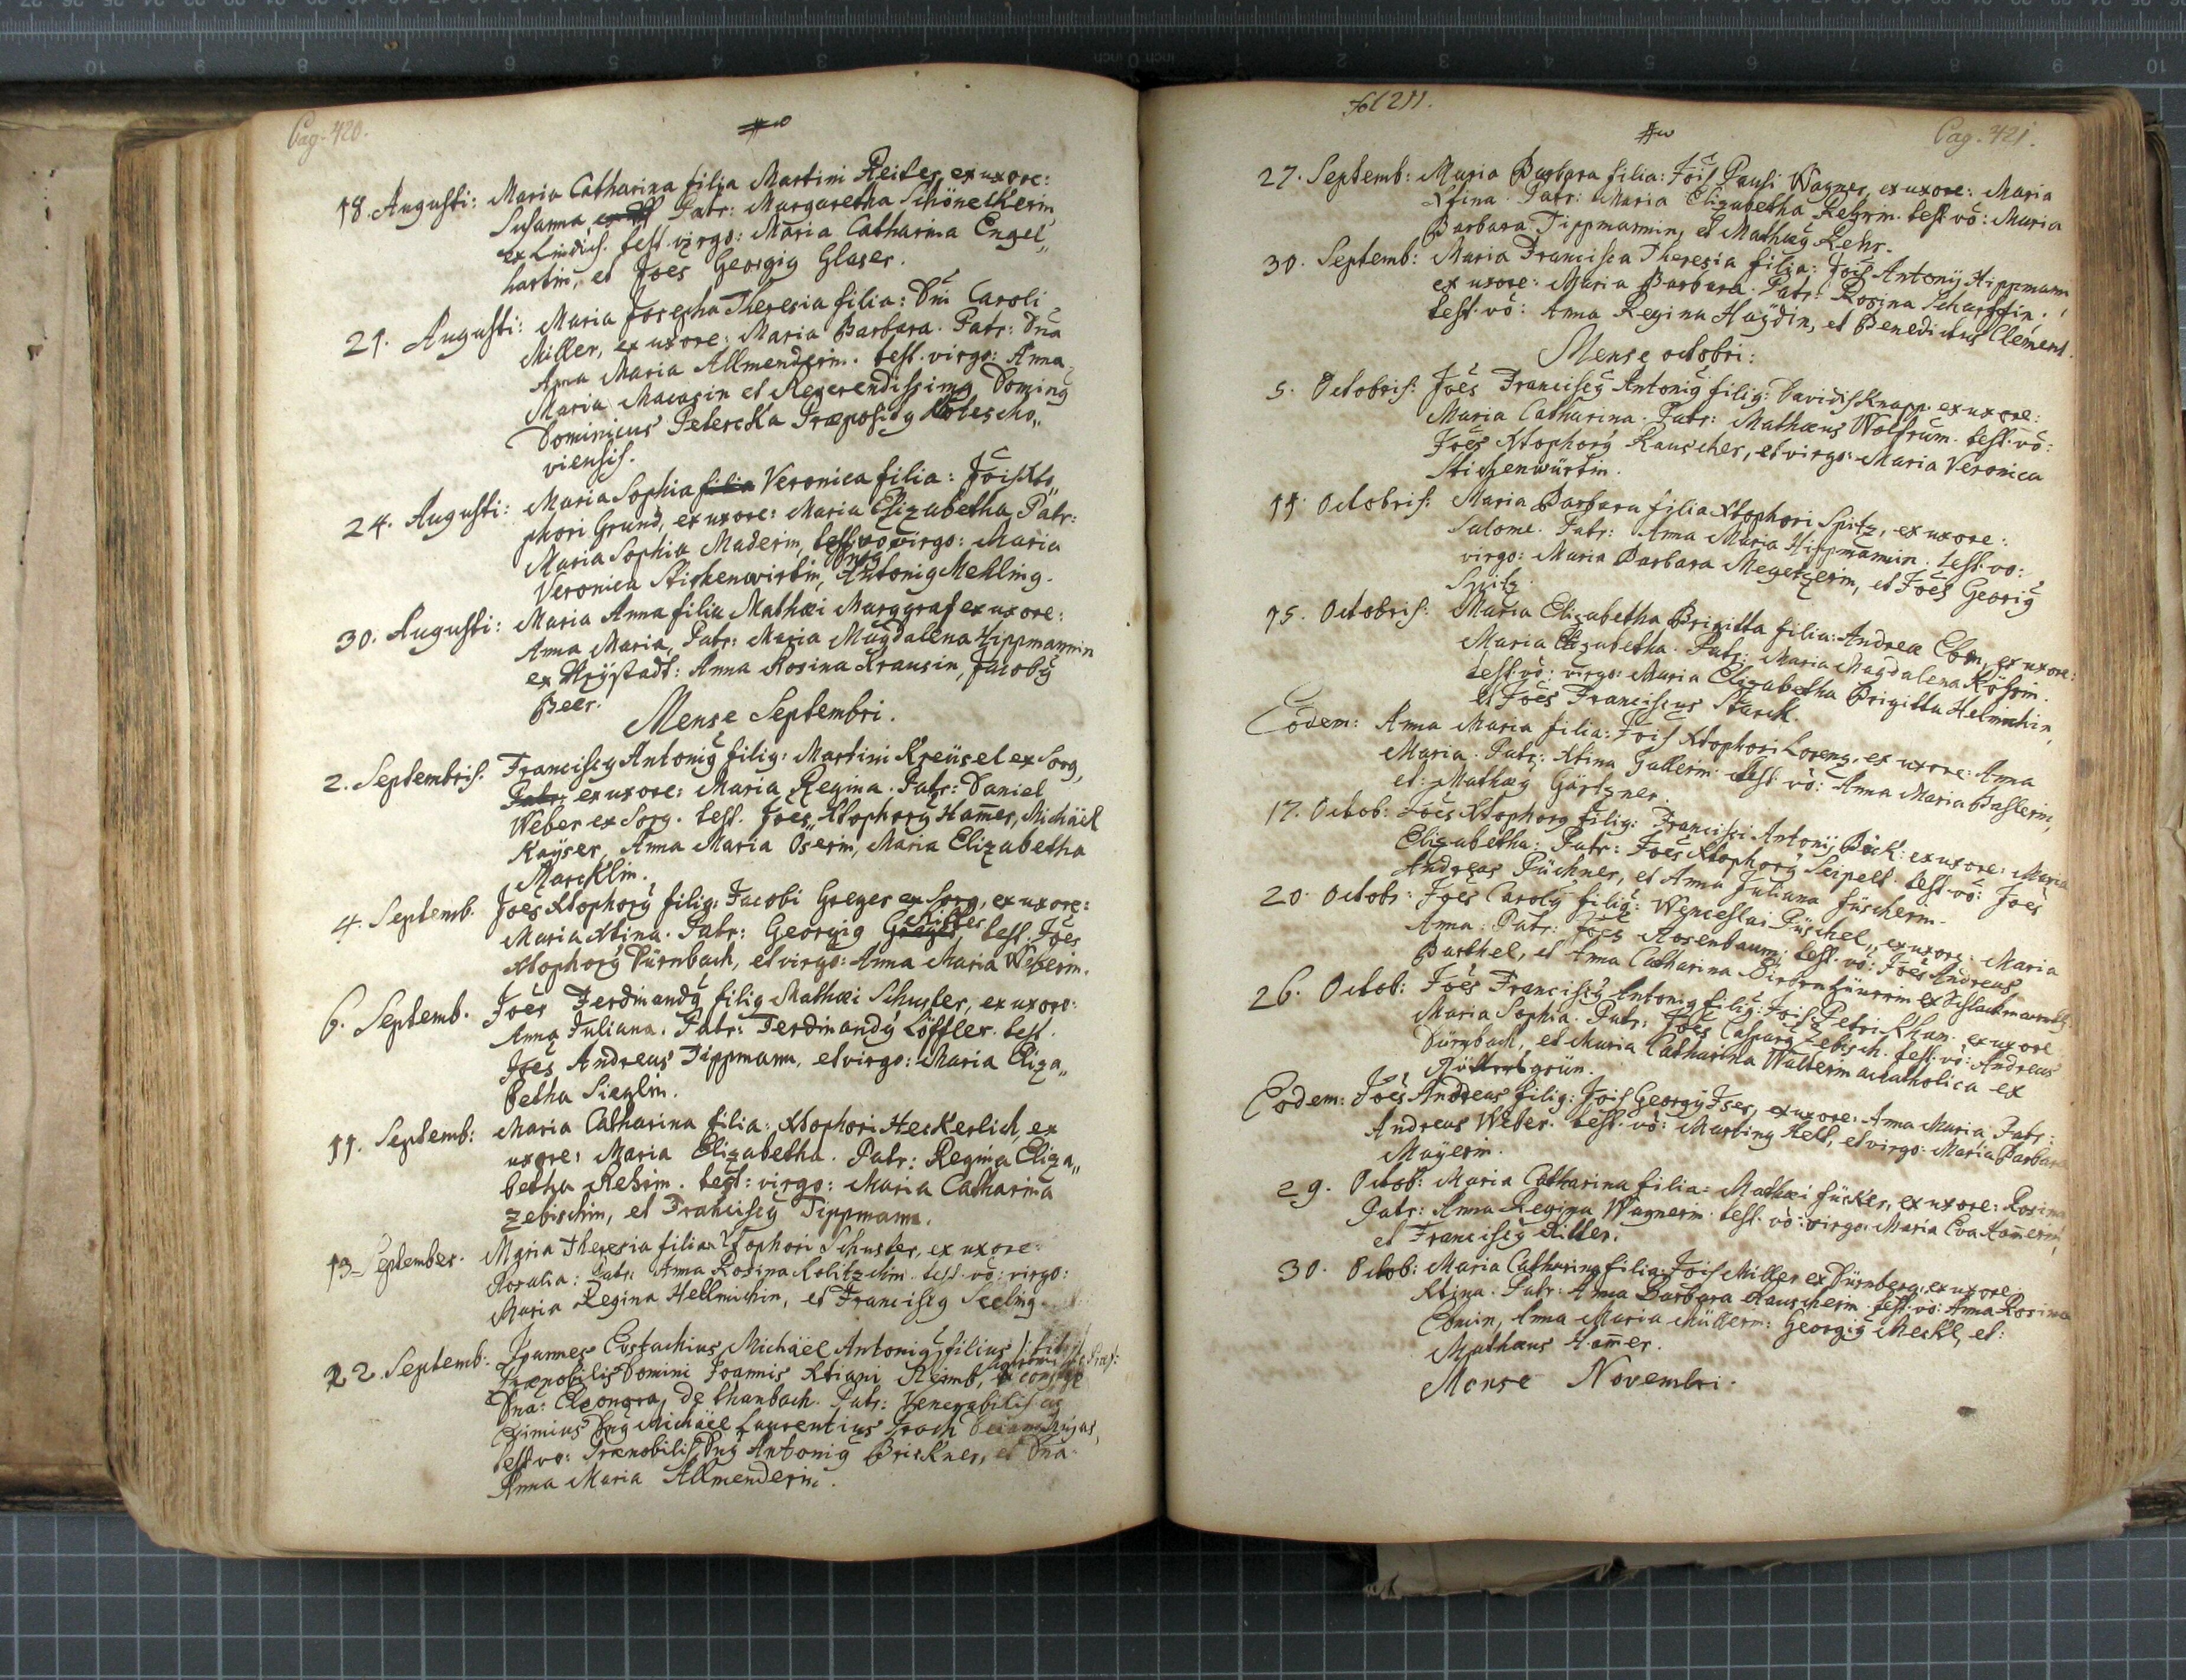 Pag. 420.
18. Augusti: Maria Catharina filia Martini Reiter, ex uxore:
Susanna, Patr: Margaretha Schöneckerin
ex Lindich. test. virgo: Maria Catharina Engel„
hartin, et Joes Georgig Glaser.
21. Augusti: Maria Josepha Theresia filia: Dni Caroli
Miller, ex uxore: Maria Barbara. Patr: Dna
Anna Maria Allmenderin. test. virgo: Anna
Maria Macasin et Reverendissimg Doming
Dominicus Petercka Præpositg
viensis.
24. Augusti: Maria Sophia filia Veronica filia: Jois Xto„
phori Grund, ex uxore: Maria Elizabetha Patr:
Maria Sophia Maderin, test. vo virgo: Maria
Veronica Stickenwirtin, Dng Antonig Mehling.
30. Augusti: Maria Anna filia Mathæi Marggraf ex uxore:
Anna Maria, Patr: Maria Magdalena Hippmannin
ex Neÿstadt: Anna Rosina Krausin, Jacobg
Beer.
Mense Septembri.
2. Septembris. Franciscg Antonig filig: Martini Kreüsel ex Sorg,
Patr: ex uxore: Maria Regina. Patr: Daniel
Weber ex Sorg. test. Joes Xtophorg Ham̄er, Michäel
Kaÿser, Anna Maria Öserin, Maria Elizabetha
Marcklin.
4. Septemb. Joes Xtophorg filig: Jacobi Greger ex Sorg, ex uxore:
Maria Xtina. Patr: Georgig Miller test. Joes
Xtophorg Dürnbach, et virgo: Anna Maria Weberin.
6. Septemb. Joes Ferdinandg filig Mathæi Schuster, ex uxore:
Anna Juliana. Patr: Ferdinandg Löffler. test.
Joes Andreas Tippmann, et virgo: Maria Eliza„
betha Sieglin.
11. Septemb: Maria Catharina filia: Xtophori Heckerlich, ex
uxore: Maria Elizabetha. Patr: Regina Eliza„
betha Rehrin. test: virgo: Maria Catharina
Zebischin, et Franciscg Tippmann.
13 September. Maria Theresia filia Xtophori Schuster, ex uxore:
Rosalia: Patr: Anna Rosina Kolitzchin. test. vo: virgo:
Maria Regina Hellmichin, et Franciscg Seeling
22. Septemb: Joannes Eustachius Michäel Antonig filius
Prænobilis Domini Joannis Xtiani Reimb,
Dna: Eleonora, de thanbach. Patr: Venerabilis ac
Eximius Dng Michäel Laurentius Trach Decang hujas,
test vo: Prænobilis Dng Antonig Brickner, et Dna
Anna Maria Allmenderin.
Fol 211.
Pag. 421.
27. Septemb: Maria Barbara filia: Jois Pauli Wagner, ex uxore: Maria
Xtina. Patr: Maria Elizabetha Rehrin. test. vo: Maria
Barbara Tippmannin, et Mathæg Rehr.
30. Septemb: Maria Francisca Theresia filia: Jois Antonij Hippmann
ex uxore: Maria Barbara. Patr: Rosina Scharffin.
test. vo: Anna Regina Haÿdin, et Benedictus Clement.
Mense octobri:
5. Octobris: Joes Franciscg Antonig filig: Davidis Knapp. ex uxore:
Maria Catharina. Patr: Mathæus Wolfrum. test. vo:
Joes Xtophorg Rauscher, et virgo: Maria Veronica
Stickenwürtin.
11. Octobris: Maria Barbara filia Xtophori Spitz, ex uxore:
Salome. Patr: Anna Maria Hippmannin. test. vo:
virgo: Maria Barbara Megetzerin, et Joes Georig
Spitz.
15. Octobris: Maria Elizabetha Brigitta filia: Andreæ Eben, ex uxore:
Maria Elizabetha. Patr: Maria Magdalena
test. vo: virgo: Maria Elizabetha Brigitta Helmichin,
et Joes Franciscus Starck.
Eodem: Anna Maria filia: Jois Xtophori Lorenz, ex uxore: Anna
Maria. Patr: Xtina Gallerin. test vo: Anna Maria Baslerin,
et: Mathæg Gärtner.
17. Octob: Joes Xtophorg filig: Francisci Antonij Böck: ex uxore: Maria
Elizabetha: Patr: Joes Xtophorg Seipelt. test. vo: Joes
Andreas Püchner, et Anna Juliana Füscherin.
20. Octobr: Joes Carolg filig: Wenceslai Püschel, ex uxore: Maria
Anna: Patr: Joes Rosenbaum; test. vo: Joes Andreas
Barthel, et Anna Catharina ex
26. Octob: Joes Franciscg Antonig filig: Jois Petri Khan. ex uxore
Maria Sophia. Patr: Joes Casparg Zebisch. test. vo: Andreas
Dürnbach, et Maria Catharina Walterin acatholica ex
Eodem: Joes Andreas filig: Jois Georgÿ Iser, ex uxore: Anna Maria. Patr:
Andreas Weber. test. vo: Marting Helt, et virgo: Maria Barbara
Maÿerin.
29. Octob: Maria Catharina filia: Mathæi Fücker, ex uxore: Rosina
Patr: Anna Regina Wagnerin. test. vo: virgo: Maria Eva Ham̄erin,
et Franciscg Ritter.
30. Octob: Maria Catharina filia: Jois Miller ex Dürnberg, ex uxore,
Xtina. Patr: Anna Barbara Rauscherin. test. vo: Anna Rosina
Ebnin, Anna Maria Müllerin: Georgig Meckl, et:
Mathæus Ham̄er.
Mense Novembri.